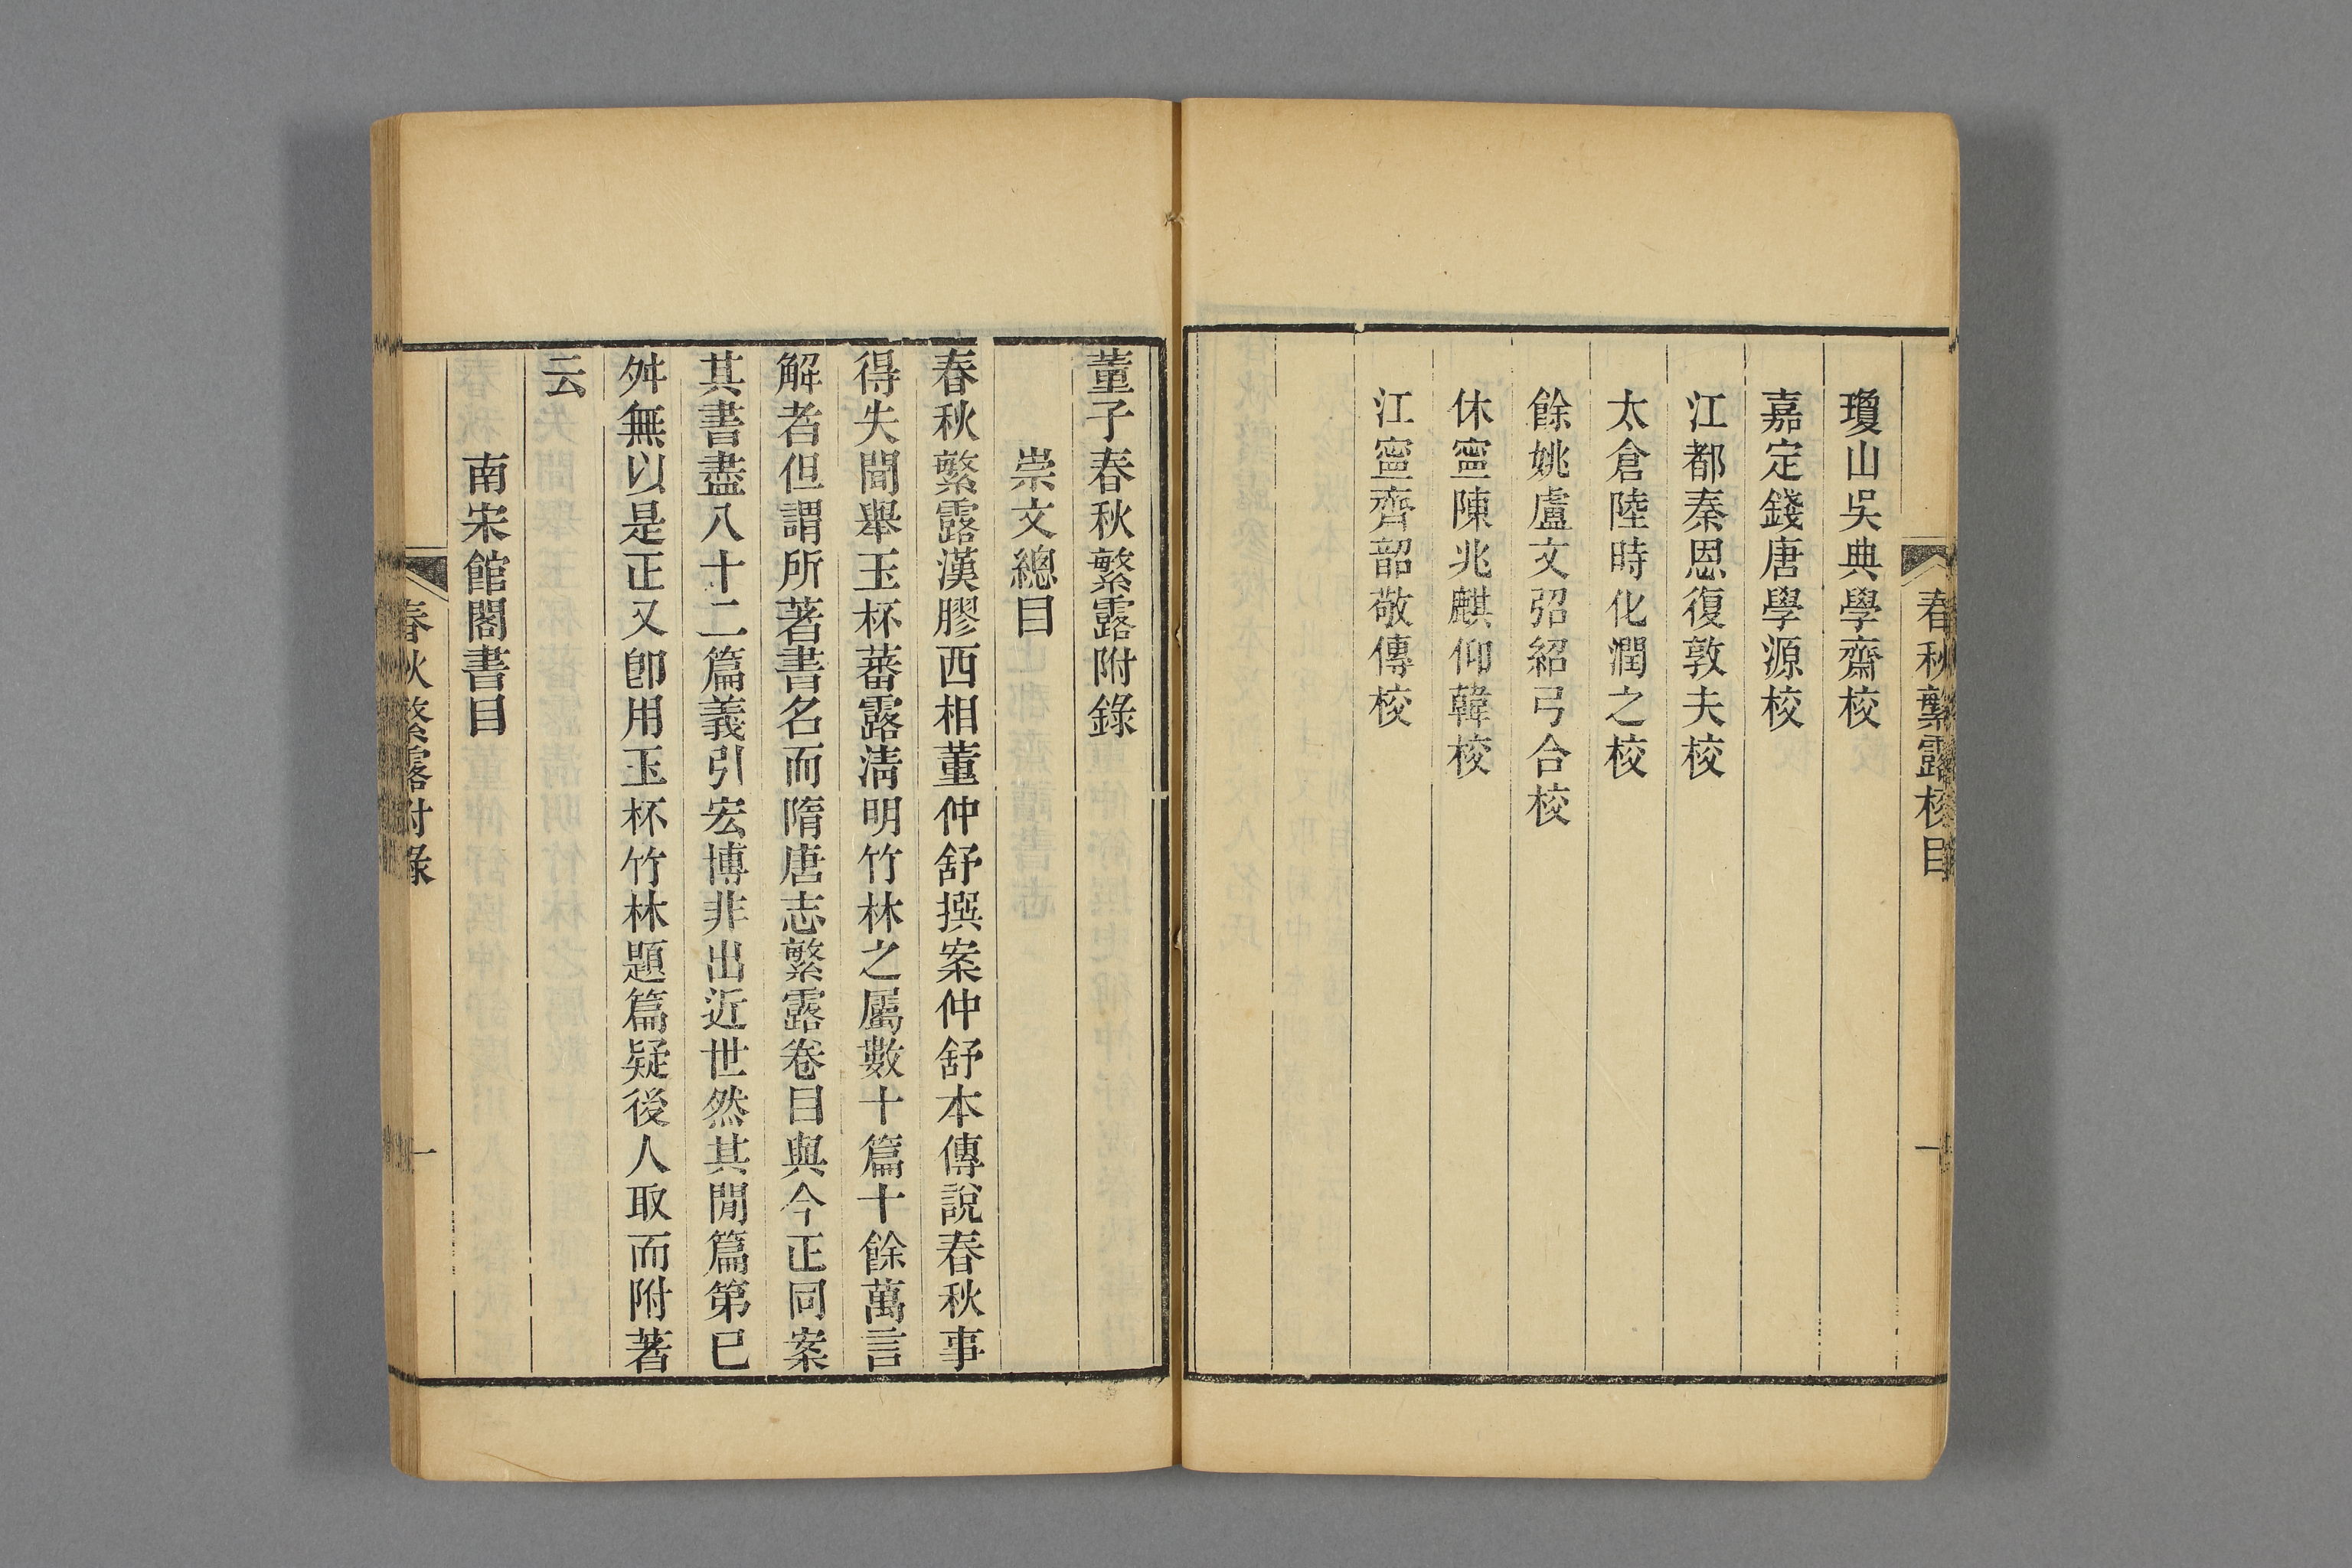 春秋繁露校目
一
瓊山吳典學齋校
嘉定錢唐學源校
江都秦恩復敦夫校
太倉陸時化潤之校
餘姚盧文弨紹弓合校
休寧陳兆麒仰韓校
江寧齊韶敬傳校
董子春秋繁露附錄
崇文總目
春秋繁露漢膠西相董仲舒撰案仲舒本傳說春秋事
得失聞舉玉杯蕃露淸明竹林之屬數十篇十餘萬言
解者但謂所著書名而隋唐志繁露卷目與今正同案
其書盡八十二篇義引宏博非出近世然其閒篇第已
舛無以是正又卽用玉杯竹林題篇疑後人取而附著
云
南宋館閣書目
春秋繁露附錄
一